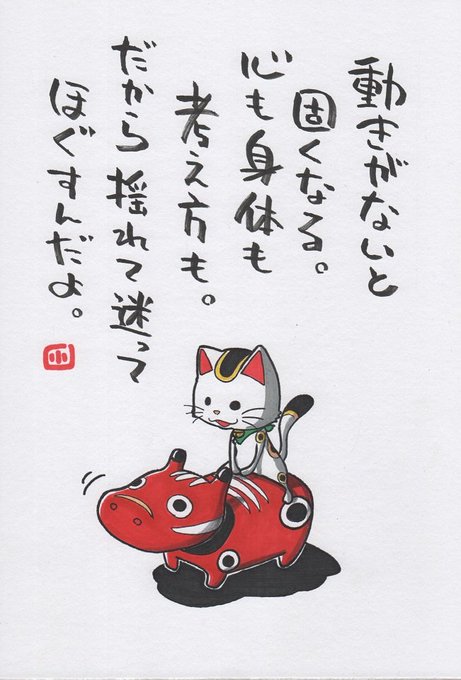 動きがないと
固くなる。
心も身体も
考え方も。
だから揺れて迷って
ほぐすんだよ。